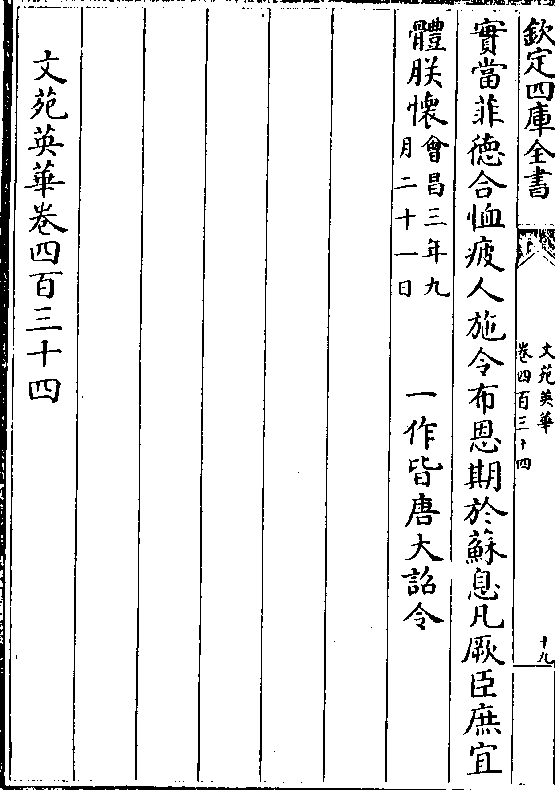 欽定四庫全書
文苑英華
卷四百三十四
十九
實當菲德合恤疲人施令布恩期於蘇息凡厥臣庶宜
體朕懷會昌三年九
月二十一日
一作皆唐大詔令
文苑英華卷四百三十四